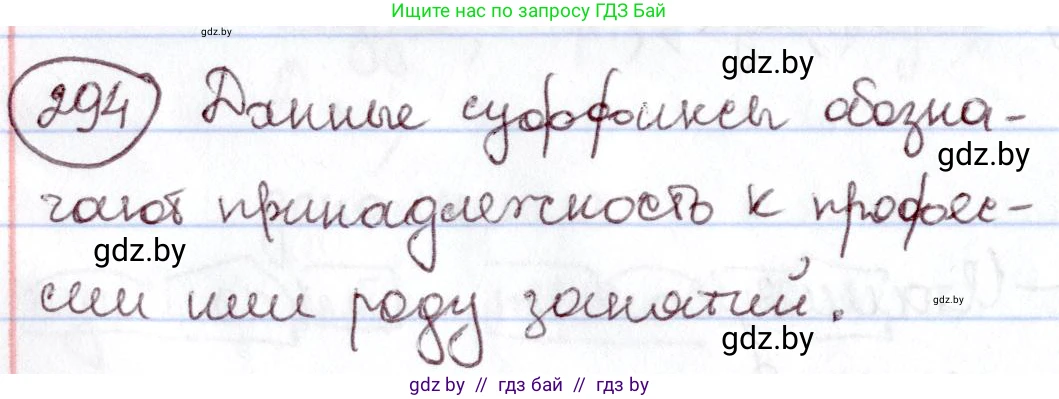 Ищите нас по запросу ГДЗ Бай
gdz.by
gdz.by
294 Данные суффиксы обозна-
gdz.by
чают принадлежность к профес-
gdz.by
сии или роду занятий.
gdz.by
gdz.by
gdz.by // гдз бай // гдз by